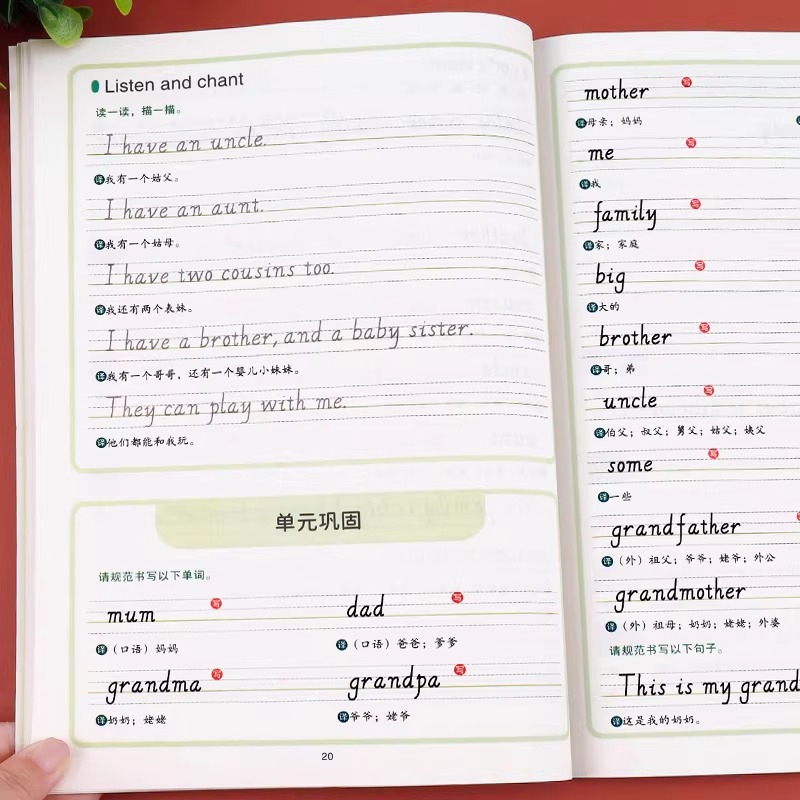 Listen and chant
读一读，描一描。
I have an uncle.
译 我有一个姑父。
I have an aunt.
译 我有一个姑母。
I have two cousins too.
译 我还有两个表妹。
I have a brother, and a baby sister.
译 我有一个哥哥，还有一个婴儿小妹妹。
They can play with me.
译 他们都能和我玩。
单元巩固
请规范书写以下单词。
mum 写 dad 写
译（口语）妈妈 译（口语）爸爸；爹爹
grandma 写 grandpa 写
译 奶奶；姥姥 译 爷爷；姥爷
20
mother 写
译 母亲；妈妈
me 写
译 我
family 写
译 家；家庭
big 写
译 大的
brother 写
译 哥；弟
uncle 写
译 伯父；叔父；舅父；姑父；姨父
some 写
译 一些
grandfather
译（外）祖父；爷爷；姥爷；外公
grandmother
译（外）祖母；奶奶；姥姥；外婆
请规范书写以下句子。
This is my grand
译 这是我的奶奶。